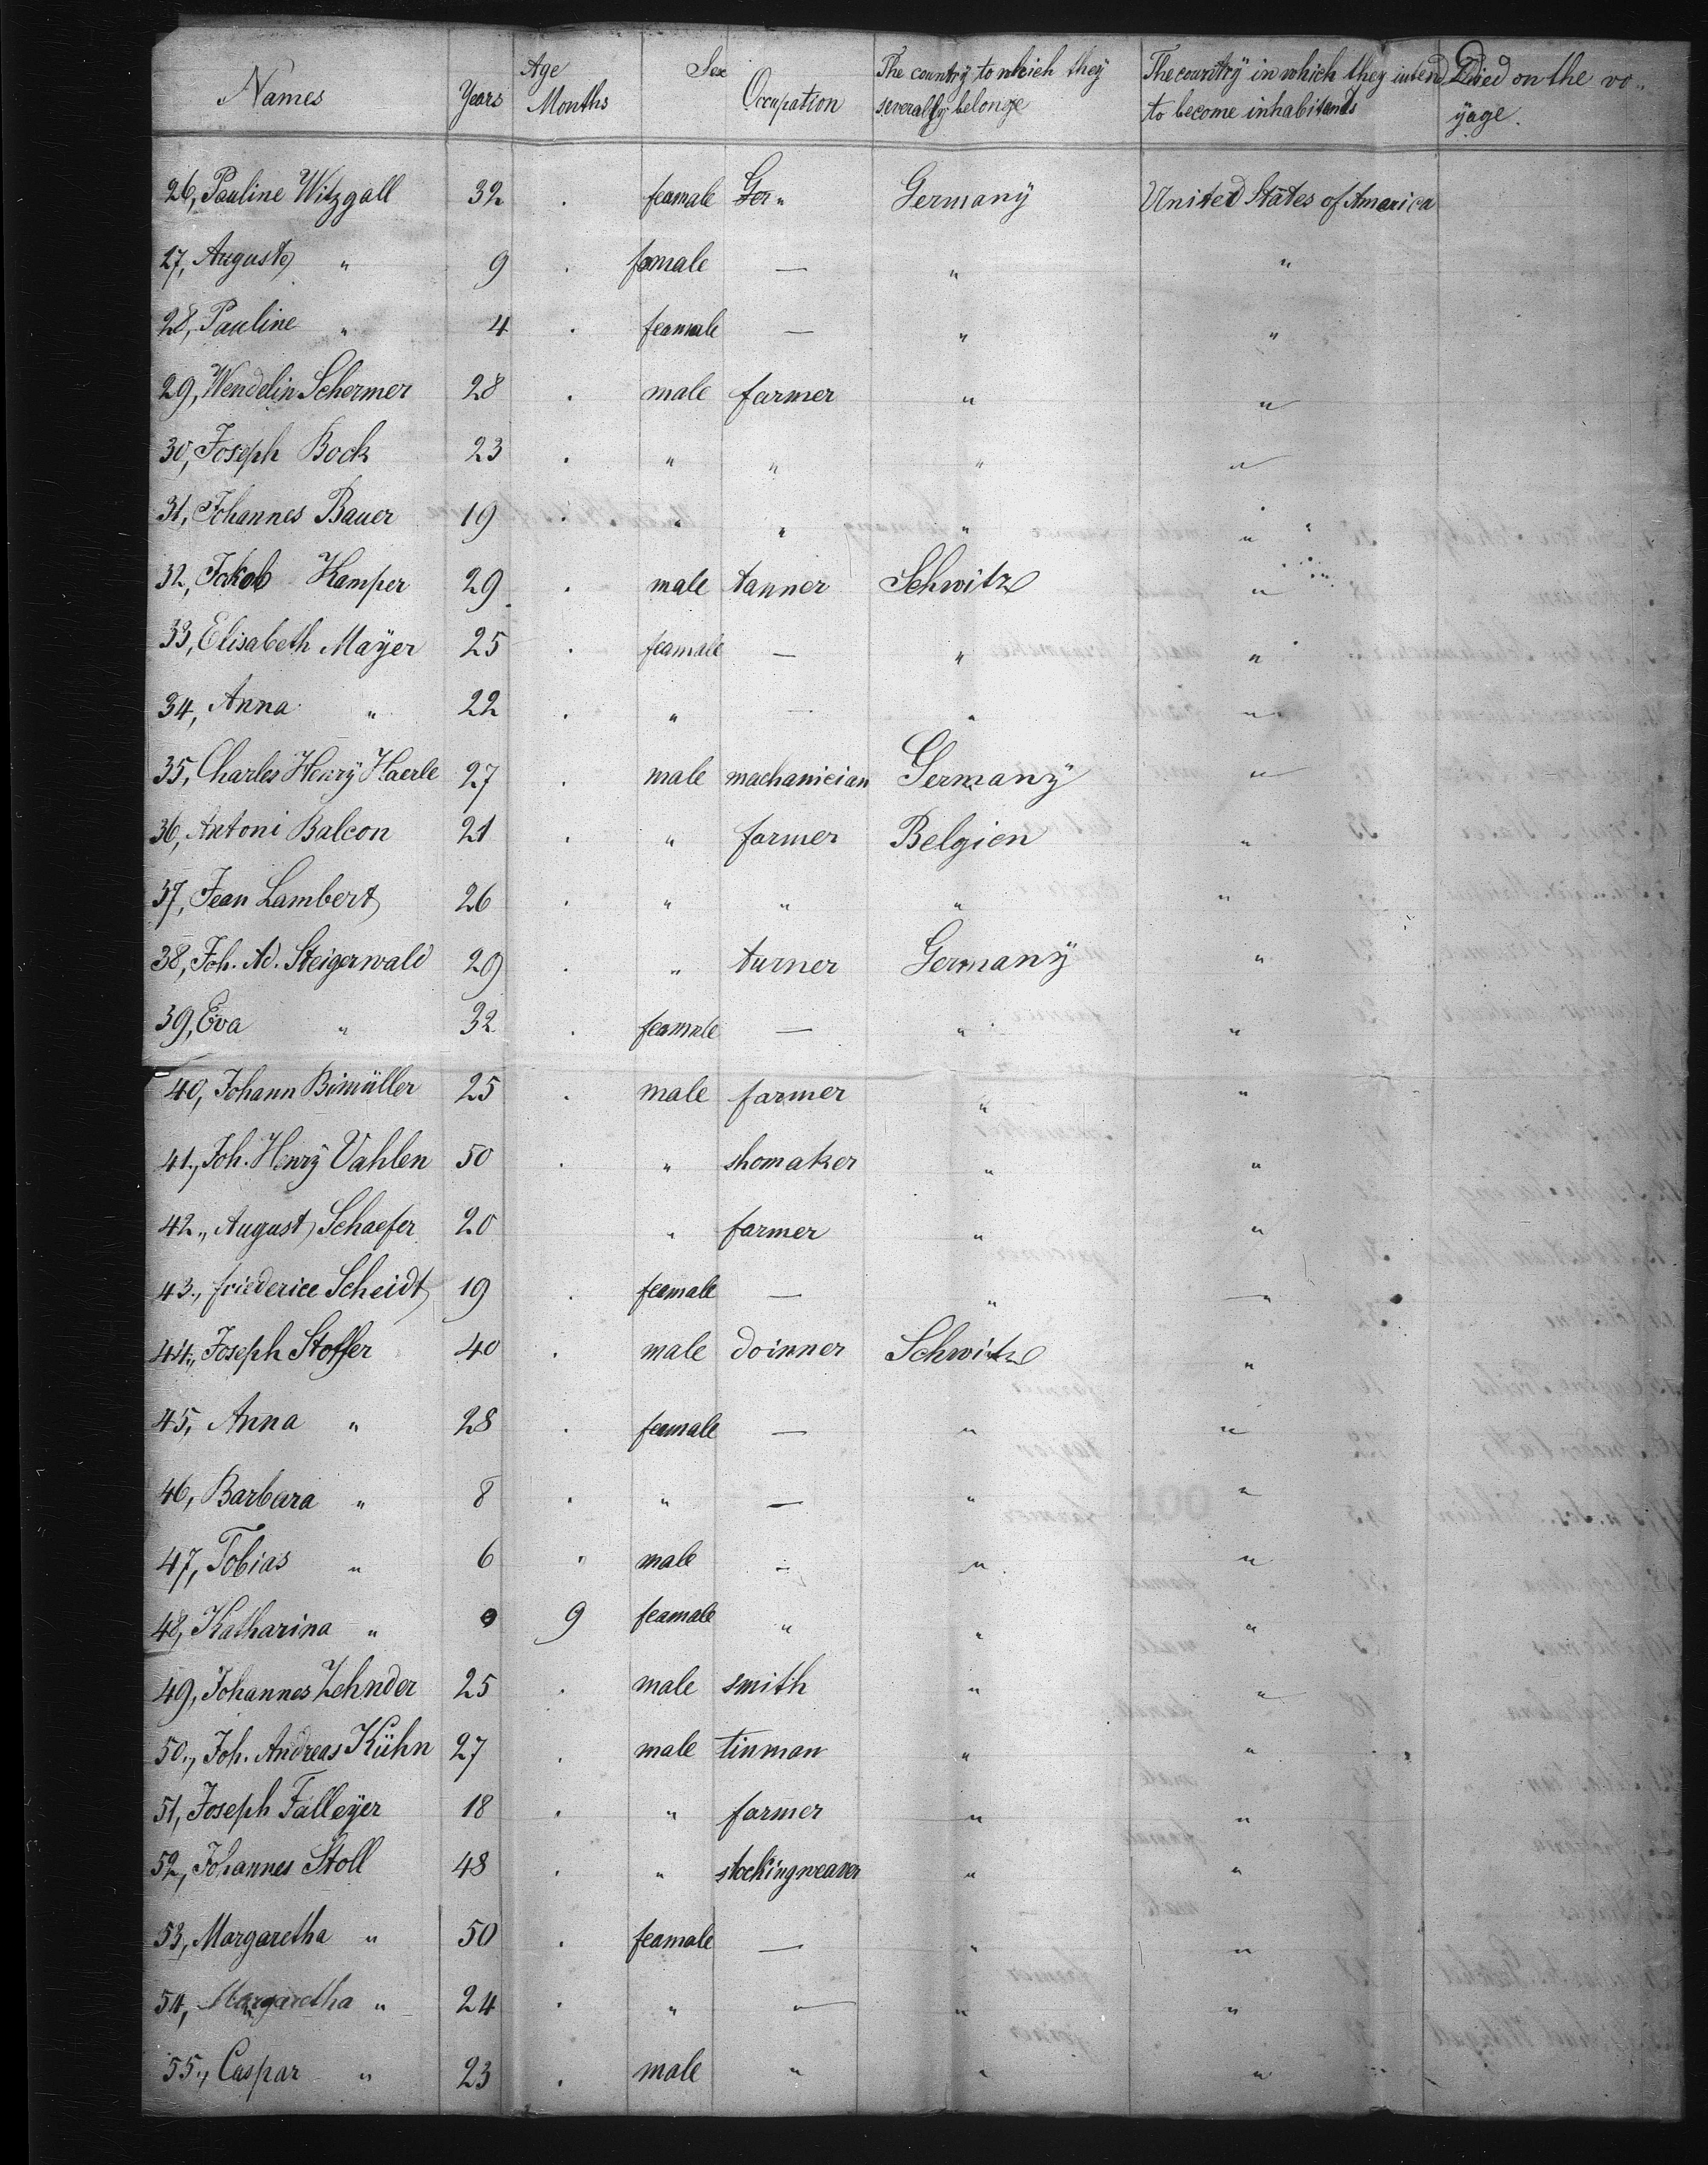 Names Years Age Months Sex Occupation The country to which they severally belonge The country in which they intend to become inhabitands Died on the voyage.
26, Pauline Witzgall 32 . feamale Ger " Germany United States of America
27, Auguste " 9 . famale — " "
28, Pauline " 4 . feamale — " "
29, Wendelin Schermer 28 . male farmer " "
30, Joseph Bock 23 . " " " "
31, Johannes Bauer 19 . " " " "
32, Jakob Kamper 29 . male tanner Schwitz "
33, Elisabeth Mayer 25 . feamale — " "
34, Anna " 22 . " — " "
35, Charles Henry Haerle 27 . male machanician Germany "
36, Antoni Balcon 21 . " farmer Belgien "
37, Jean Lambert 26 . " " " "
38, Joh. Ad. Steigerwald 29 . " turner Germany "
39, Eva " 32 . feamale — " "
40, Johann Bimüller 25 . male farmer " "
41., Joh. Henry Vahlen 50 . " shomaker " "
42., August Schaefer 20 " farmer " "
43., friederice Scheidt 19 . feamale — " "
44., Joseph Stoffer 40 . male doinner Schwitz "
45, Anna " 28 . feamale — " "
46, Barbara " 8 . " — " "
47, Tobias " 6 " male — " "
48, Katharina " 0 9 feamale " " "
49, Johannes Zehnder 25 . male smith " "
50., Joh. Andreas Kühn 27 . male tinman " "
51, Joseph Falleyer 18 . " farmer " "
52, Johannes Stoll 48 . " stockingweaver " "
53, Margaretha " 50 . feamale — " "
54, Margaretha " 24 . " — " "
55., Caspar " 23 . male " " "